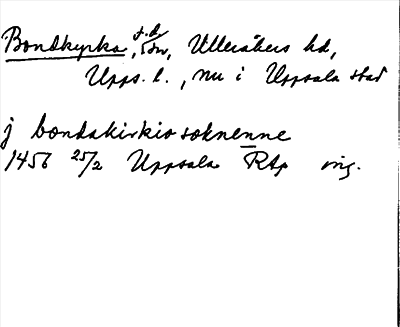 Bondkyrka, s.d. sn, Ulleråkers hd,
Upps. l., nu i Uppsala stad
j bondakirkio soknenne
1456 25/2 Uppsala Rtp orig.